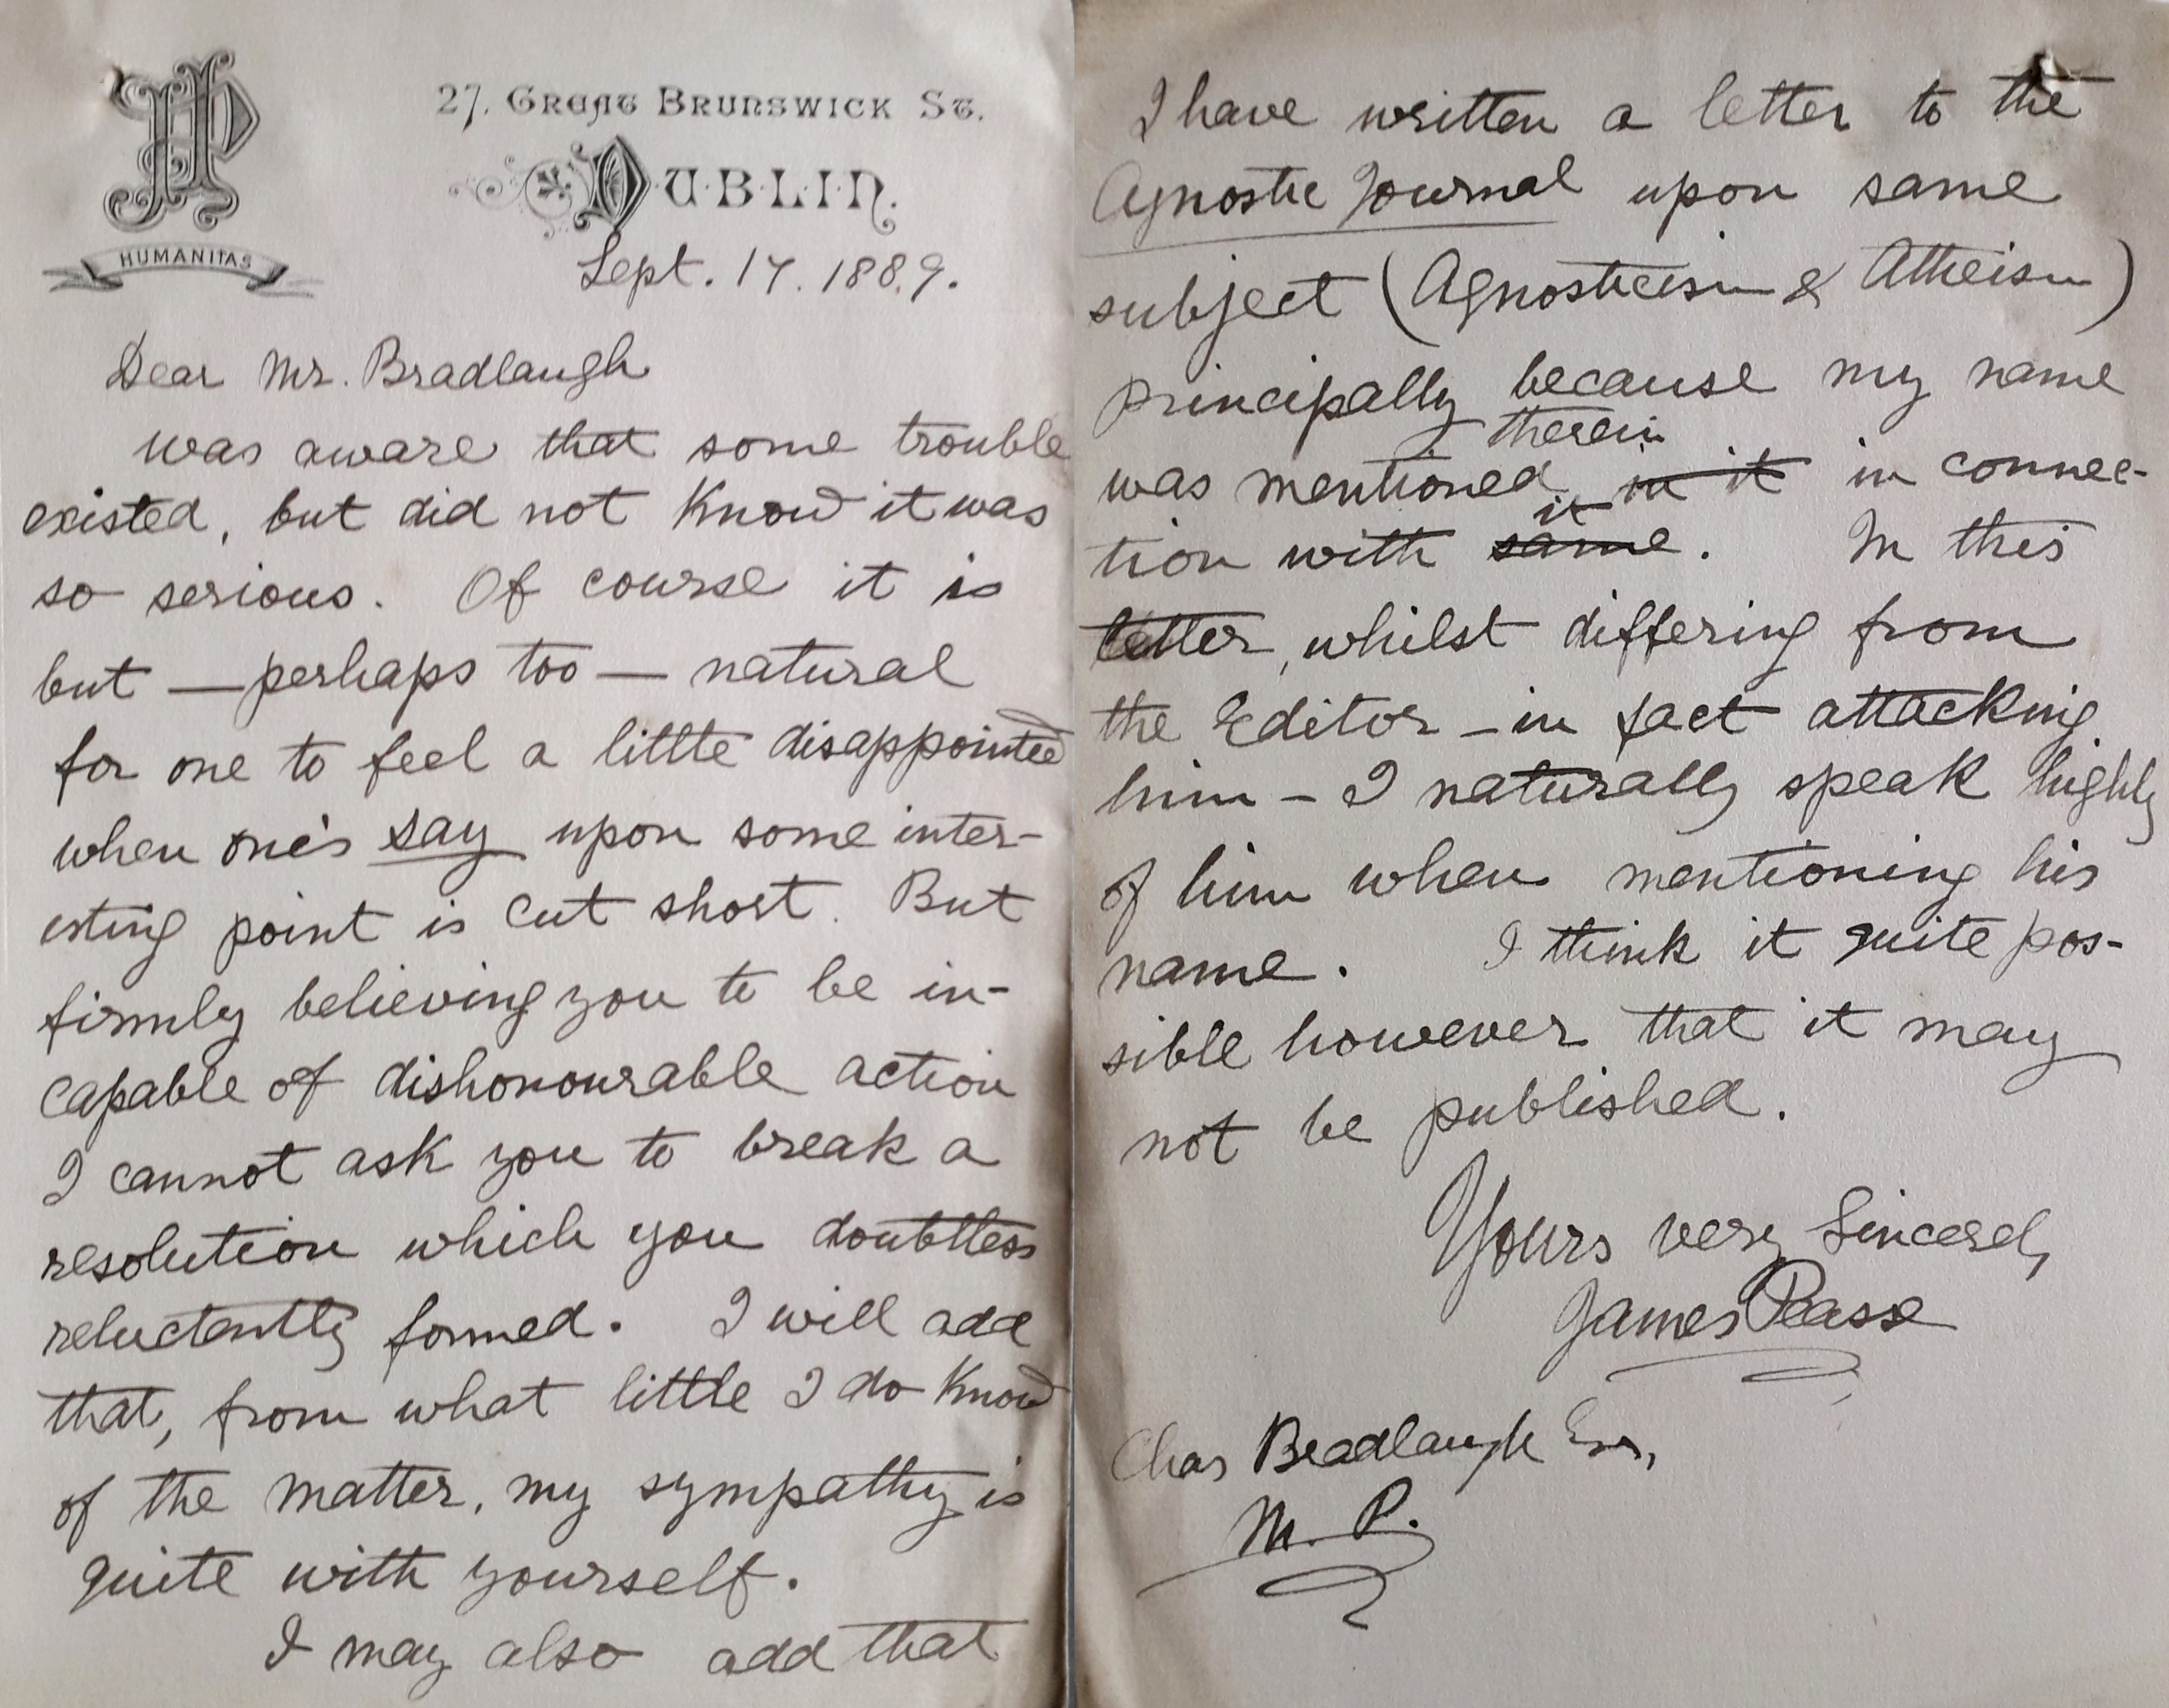 JP
HUMANITAS
27. GREAT BRUNSWICK ST.
DUBLIN.
Sept. 17. 1889.
Dear Mr. Bradlaugh
was aware that some trouble
existed, but did not know it was
so serious. Of course it is
but — perhaps too — natural
for one to feel a little disappointed
when one's say upon some inter-
esting point is cut short. But
firmly believing you to be in-
capable of dishonourable action
I cannot ask you to break a
resolution which you doubtless
reluctantly formed. I will add
that, from what little I do know
of the matter, my sympathy is
quite with yourself.
I may also add that
I have written a letter to the
Agnostic Journal upon same
subject (Agnosticism & Atheism)
principally because my name
therein
was mentioned in it in connec-
it
tion with same. In this
letter, whilst differing from
the Editor – in fact attacking
him – I naturally speak highly
of him when mentioning his
name. I think it quite pos-
sible however that it may
not be published.
Yours very Sincerely
James Pease
Chas Bradlaugh Esq,
M. P.